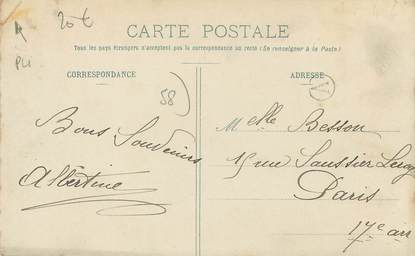 20€
PLI
CARTE POSTALE
Tous les pays étrangers n'acceptent pas la correspondance au recto (Se renseigner à la Poste)
CORRESPONDANCE
ADRESSE
58
Bons Souvenirs
Albertine
Melle Besson
15 rue Saussier Leroy
Paris
17e arr